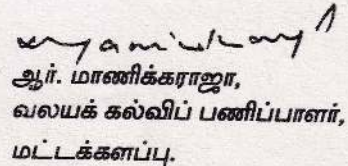 ஆர். மாணிக்கராஜா,
வலயக் கல்விப் பணிப்பாளர்,
மட்டக்களப்பு.